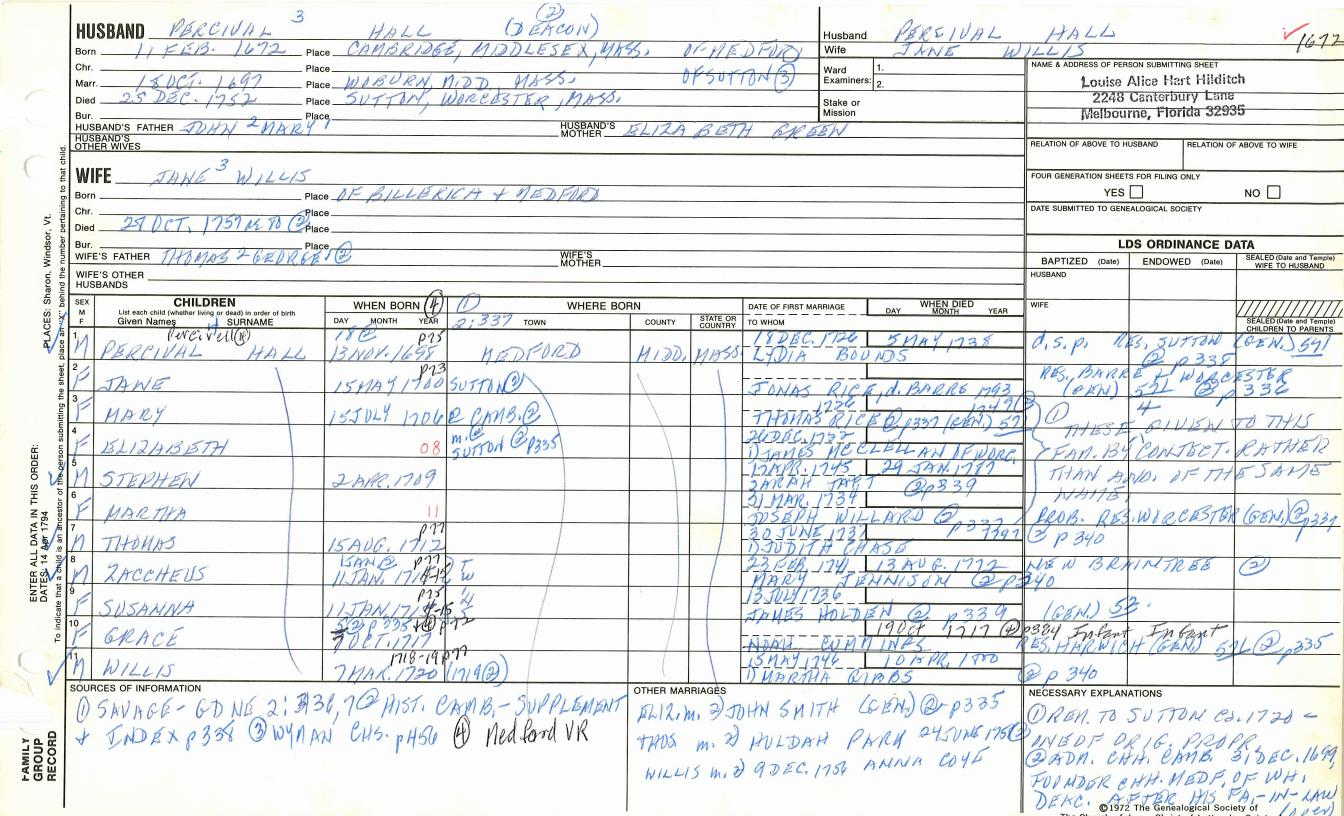 HUSBAND PERCIVAL 3 HALL (DEACON) (2)
Born 11 FEB. 1672 Place CAMBRIDGE, MIDDLESEX, MASS. OF MEDFORD
Chr. Place
Marr. 18 OCT. 1697 Place WOBURN, MIDD. MASS. OF SUTTON (3)
Died 25 DEC. 1752 Place SUTTON, WORCESTER, MASS.
Bur. Place
HUSBAND'S FATHER JOHN 2 MARY 1 HUSBAND'S MOTHER ELIZABETH GREEN
HUSBAND'S OTHER WIVES
Husband PERCIVAL HALL
Wife JANE WILLIS
1672
Ward Examiners: 1.
2.
Stake or Mission
NAME & ADDRESS OF PERSON SUBMITTING SHEET
Louise Alice Hart Hilditch
2248 Canterbury Lane
Melbourne, Florida 32935
RELATION OF ABOVE TO HUSBAND RELATION OF ABOVE TO WIFE
FOUR GENERATION SHEETS FOR FILING ONLY
YES NO
DATE SUBMITTED TO GENEALOGICAL SOCIETY
WIFE JANE 3 WILLIS
Born Place OF BILLERICA + MEDFORD
Chr. Place
Died OCT. 1757 (2) Place
Bur. Place
WIFE'S FATHER THOMAS 2 GEORGE 1 (2) WIFE'S MOTHER
WIFE'S OTHER HUSBANDS
LDS ORDINANCE DATA
BAPTIZED (Date) ENDOWED (Date) SEALED (Date and Temple) WIFE TO HUSBAND
HUSBAND
WIFE
SEALED (Date and Temple) CHILDREN TO PARENTS
SEX M F CHILDREN List each child (whether living or dead) in order of birth Given Names SURNAME
WHEN BORN (4) DAY MONTH YEAR
(1) 2:337 WHERE BORN TOWN COUNTY STATE OR COUNTRY
DATE OF FIRST MARRIAGE TO WHOM
WHEN DIED DAY MONTH YEAR
1 M Percivell (4) PERCIVAL HALL 18 (2) p75 13 NOV. 1698 MEDFORD MIDD. MASS. 18 DEC. 1726 5 MAY 1738 LYDIA BOUNDS d.s.p. RES. SUTTON (GEN.) 571 (2) p338
2 F JANE p73 15 MAY 1700 SUTTON (2) JONAS RICE, d. BARRE 1793 RES. BARRE + WORCESTER (GEN) 521 (2) p336
3 F MARY 15 JULY 1706 @ CAMB. (2) THOMAS RICE (2) p337 (GEN.) 52
4 F ELIZABETH 08 m. @ SUTTON (2) p335 26 DEC. JAMES MCCLELLAN OF WORC.
5 M STEPHEN 2 APR. 1709 17 APR. 1745 29 JAN. SARAH TAFT (2) p339
6 F MARTHA 11 31 MAR. 1734 JOSEPH WILLARD (2) p337
7 M THOMAS p77 15 AUG. 1712 30 JUNE 1737 JUDITH CHASE (2) p340
8 M ZACCHEUS p77 11 JAN. 23 FEB. 1741 13 AUG. 1772 MARY JENNISON (2) p340 NEW BRAINTREE (2)
9 F SUSANNA p75 11 JAN. 13 JULY 1736 JAMES HOLDEN (2) p339 (GEN) 52.
10 F GRACE OCT. 1717 19 Oct 1717 (4) p384 Infant Infant NOAH CUMMINGS RES. HARWICH (GEN) 521 (2) p335
11 M WILLIS 1718-19 p77 7 MAR. 1720 (1719 (2)) 15 MAY 1746 10 APR. MARTHA GIBBS (2) p340
(1) THESE GIVEN TO THIS
FAM. BY CONJECT. RATHER
THAN ANO. OF THE SAME
NAME.
PROB. RES. WORCESTER (GEN.) (2) p337
SOURCES OF INFORMATION
(1) SAVAGE - GD NE 2:336,7 (2) HIST. CAMB. - SUPPLEMENT
+ INDEX p338 (3) WYMAN CHS. p456 (4) Medford VR
OTHER MARRIAGES
ELIZ. m. 2) JOHN SMITH (GEN) (2) p335
THOS m. 2) HULDAH PARK 24 JUNE
WILLIS m. 2) 9 DEC. 1756 ANNA COYE
NECESSARY EXPLANATIONS
(1) REM. TO SUTTON CA. 1720 -
ONE OF ORIG. PROPR.
(2) ADM. CHH. CAMB. 3 DEC. 1699,
FOUNDER CHH. MEDF. OF WH.
DEAC. AFTER HIS FA.-IN-LAW
©1972 The Genealogical Society of
PLACES: Sharon, Windsor, Vt.
ENTER ALL DATA IN THIS ORDER:
DATES: 14 Apr 1794
To indicate that a child is an ancestor of the person submitting the sheet, place an "X" behind the number pertaining to that child.
FAMILY GROUP RECORD